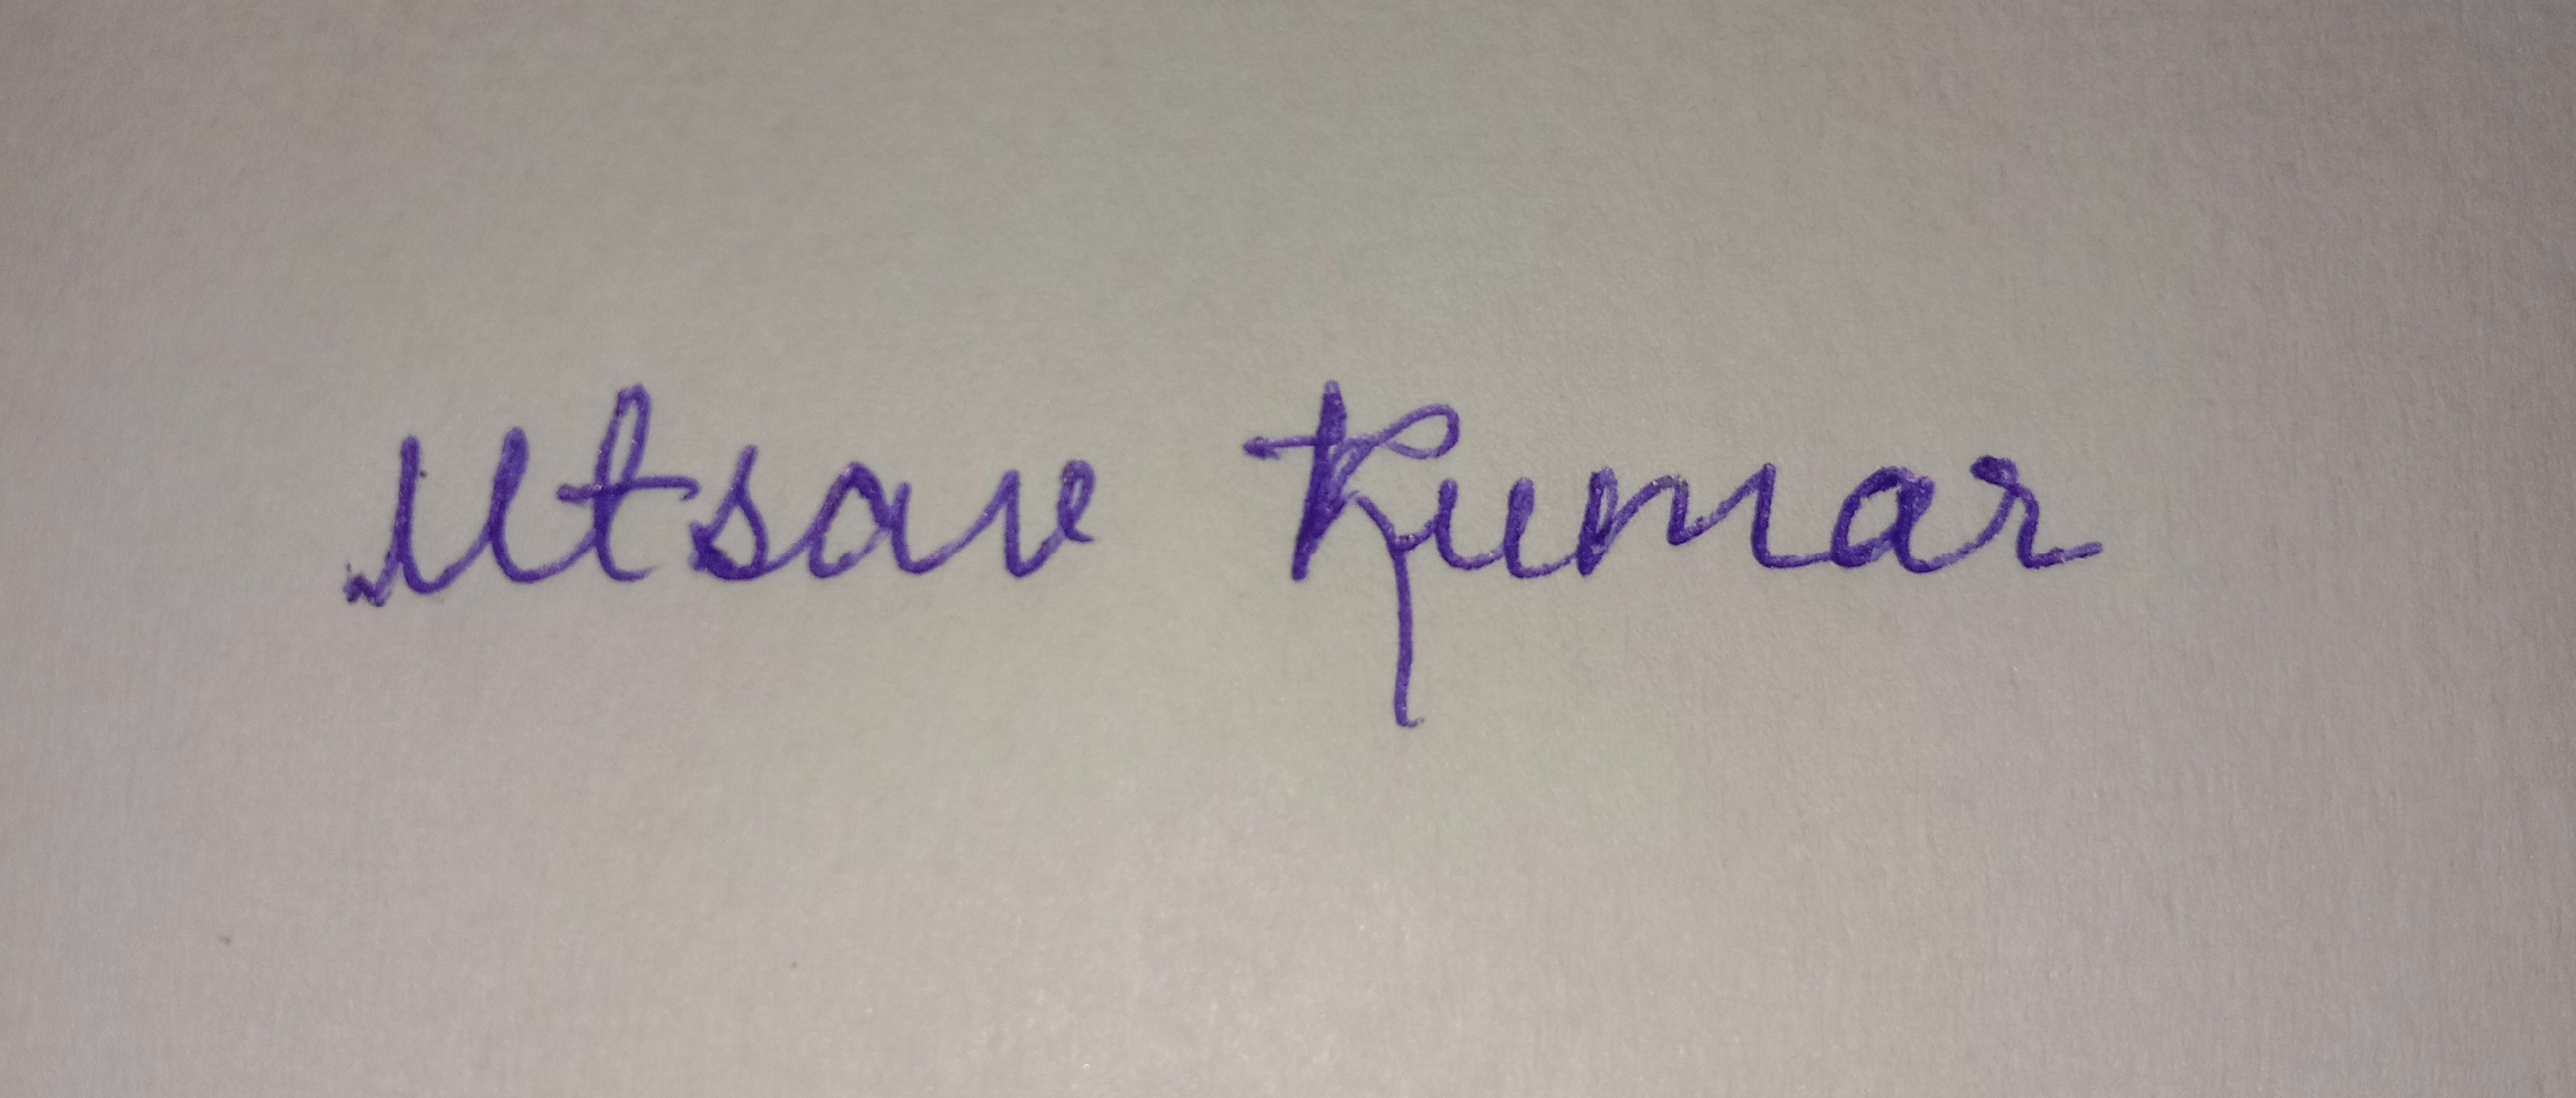 Utsav Kumar